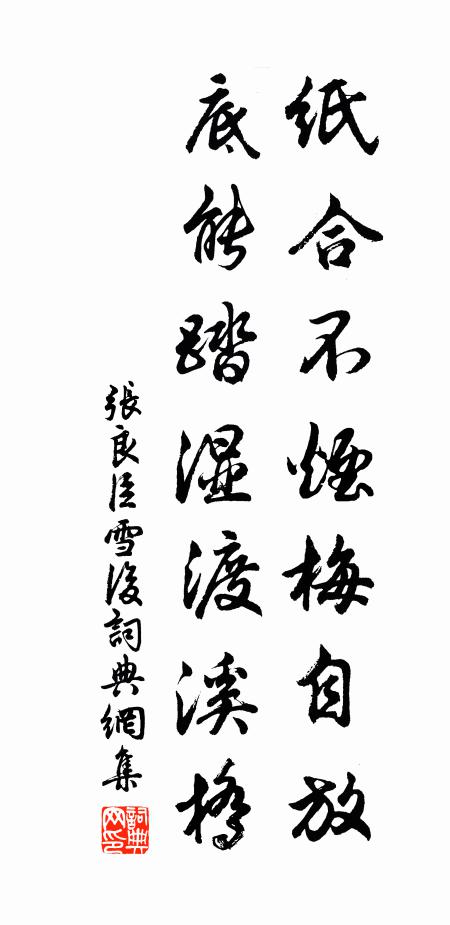 纸合不煙梅自放
底能踏湿渡溪橋
張良臣雪後詞典網集
詞典网印